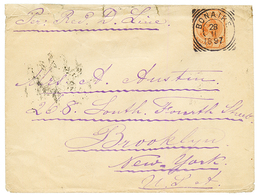 Per Red D. Line
BONAIRE
26
1897
Alfred Austin
215 South Fourth Street
Brooklyn
New York
U.S.A